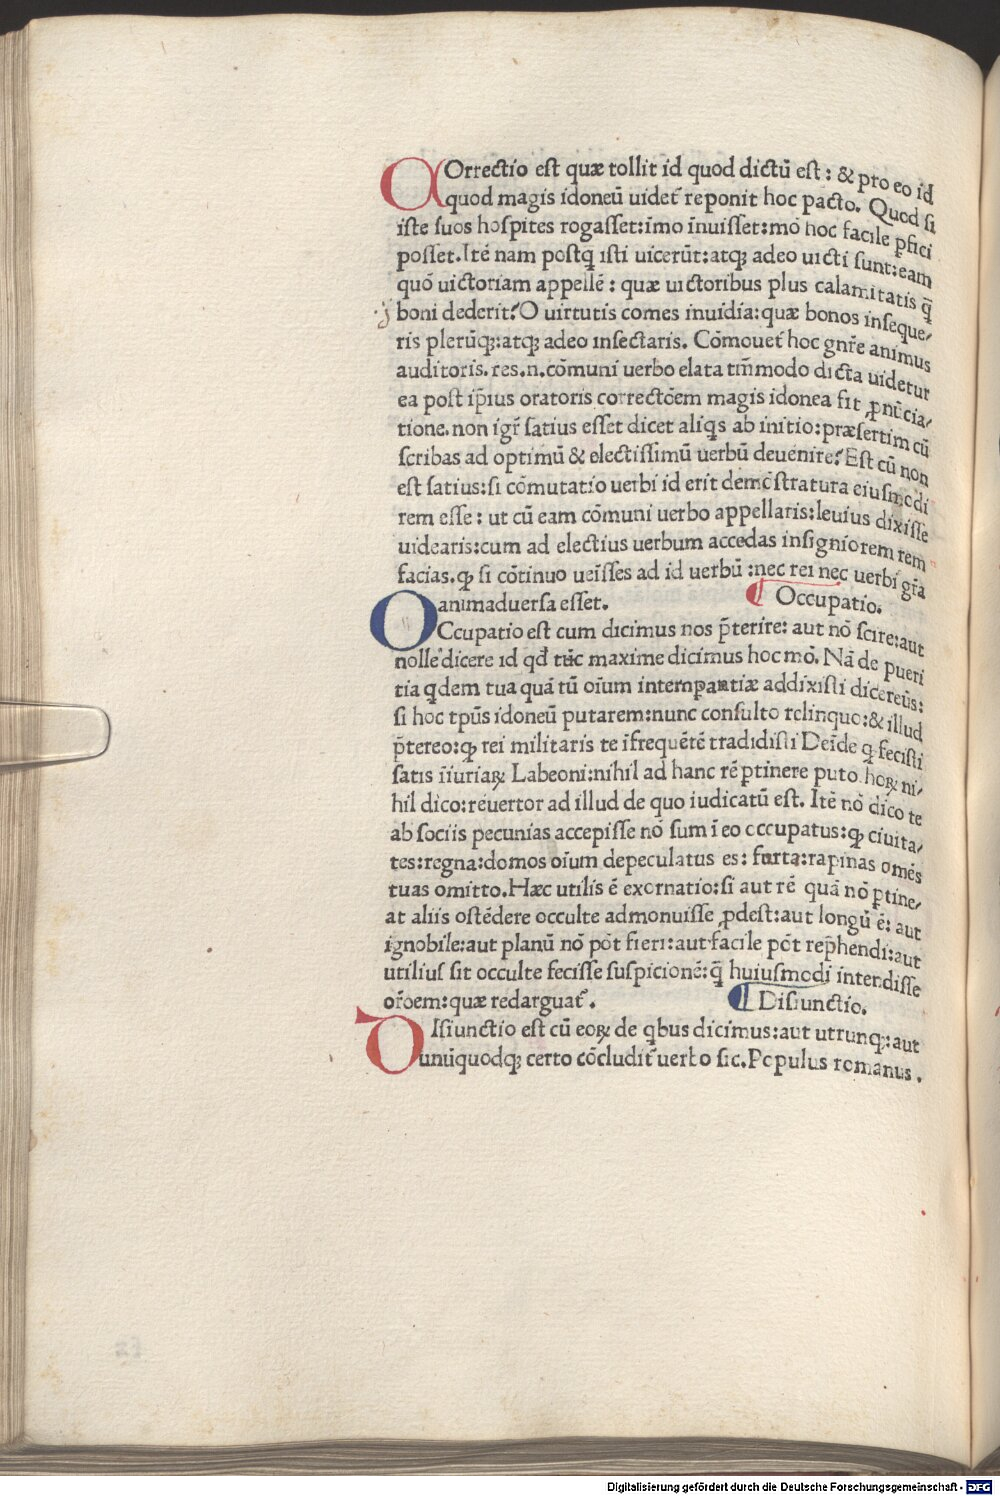 COrrectio est quæ tollit id quod dictū est: & pro eo id
quod magis idoneū uidet̃ reponit hoc pacto. Quod si
iste suos hospites rogasset:īmo īnuisset:mō hoc facile ꝑfici
posset.Itē nam postꝗ isti uicerūt:atꝗ adeo uicti sunt:eam
quō uictoriam appellē: quæ uictoribus plus calamitatis ꝗ̄
boni dederit?O uirtutis comes inuidia:quæ bonos inseque/
ris plerūꝗ:atꝗ adeo insectaris. Cōmouet̃ hoc gn̄re animus
auditoris.res.n.cōmuni uerbo elata tm̄modo dicta uidetur
ea post ip̄ius oratoris correctōem magis idonea fit ꝓnūcia/
tione.non igr̃ satius esset dicet aliqs ab initio:præsertim cū
scribas ad optimū & electissimū uerbū deuenire?Est cū non
est satius:si cōmutatio uerbi id erit demōstratura eiusmodi
rem esse: ut cū eam cōmuni uerbo appellaris:leuius dixisse
uidearis:cum ad electius uerbum accedas insigniorem rem
facias.ꝙ si cōtinuo ueīsses ad id uerbū :nec rei nec uerbi gr̄a
animaduersa esset. ¶ Occupatio.
OCcupatio est cum dicimus nos p̄terire: aut nō scire:aut
nolle dicere id qd̄ tūc maxime dicimus hoc mō. Nā de pueri
tia qdem tua quā tū oīum intempantiæ addixisti dicereūs:
si hoc tpūs idoneū putarem:nunc consulto relinquo:& illud
p̄tereo:ꝙ rei militaris te īfrequētē tradidisti Deīde ꝙ fecisti
satis īiuriaꝝ Labeoni:nihil ad hanc rē ꝑtinere puto hoꝝ ni/
hil dico:reuertor ad illud de quo iudicatū est. Itē nō dico te
ab sociis pecunias accepisse nō sum ī eo occupatus:ꝙ ciuita/
tes:regna:domos oīum depeculatus es: furta:rapinas omēs
tuas omitto.Hæc utilis ē exornatio:si aut rē quā nō ꝑtine/
at aliis ostēdere occulte admonuisse ꝓdest:aut longū ē: aut
ignobile:aut planū nō pōt fieri:aut facile pōt rep̄hendi:aut
utilius sit occulte fecisse suspicionē:ꝗ̄ huiusmodi intendisse
or̄oem:quæ redarguat̃. ¶ Disiunctio.
DIsiunctio est cū eoꝝ de qbus dicimus:aut utrunꝗ:aut
unūquodꝗ certo cōcludit̃ uerbo sic.Populus romanus.
Digitalisierung gefördert durch die Deutsche Forschungsgemeinschaft - DFG